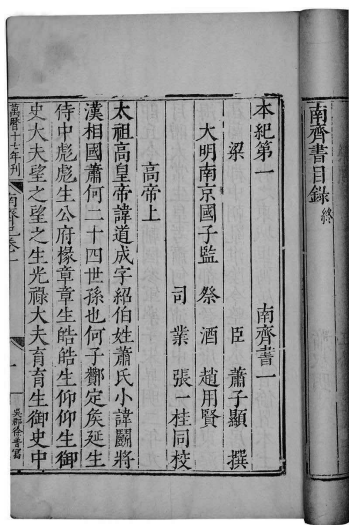 南齊書目錄 終
本紀第一 南齊書一
梁 臣 蕭子顯 撰
大明南京國子監 祭 酒 趙用賢
司 業 張一桂同校
高帝上
太祖高皇帝諱道成字紹伯姓蕭氏小諱鬭將
漢相國蕭何二十四世孫也何子酇定矦延生
侍中彪彪生公府掾章章生皓皓生仰仰生御
史大夫望之望之生光祿大夫育育生御史中
萬曆十七年刊 南齊紀卷一 一
吳郡徐普寫